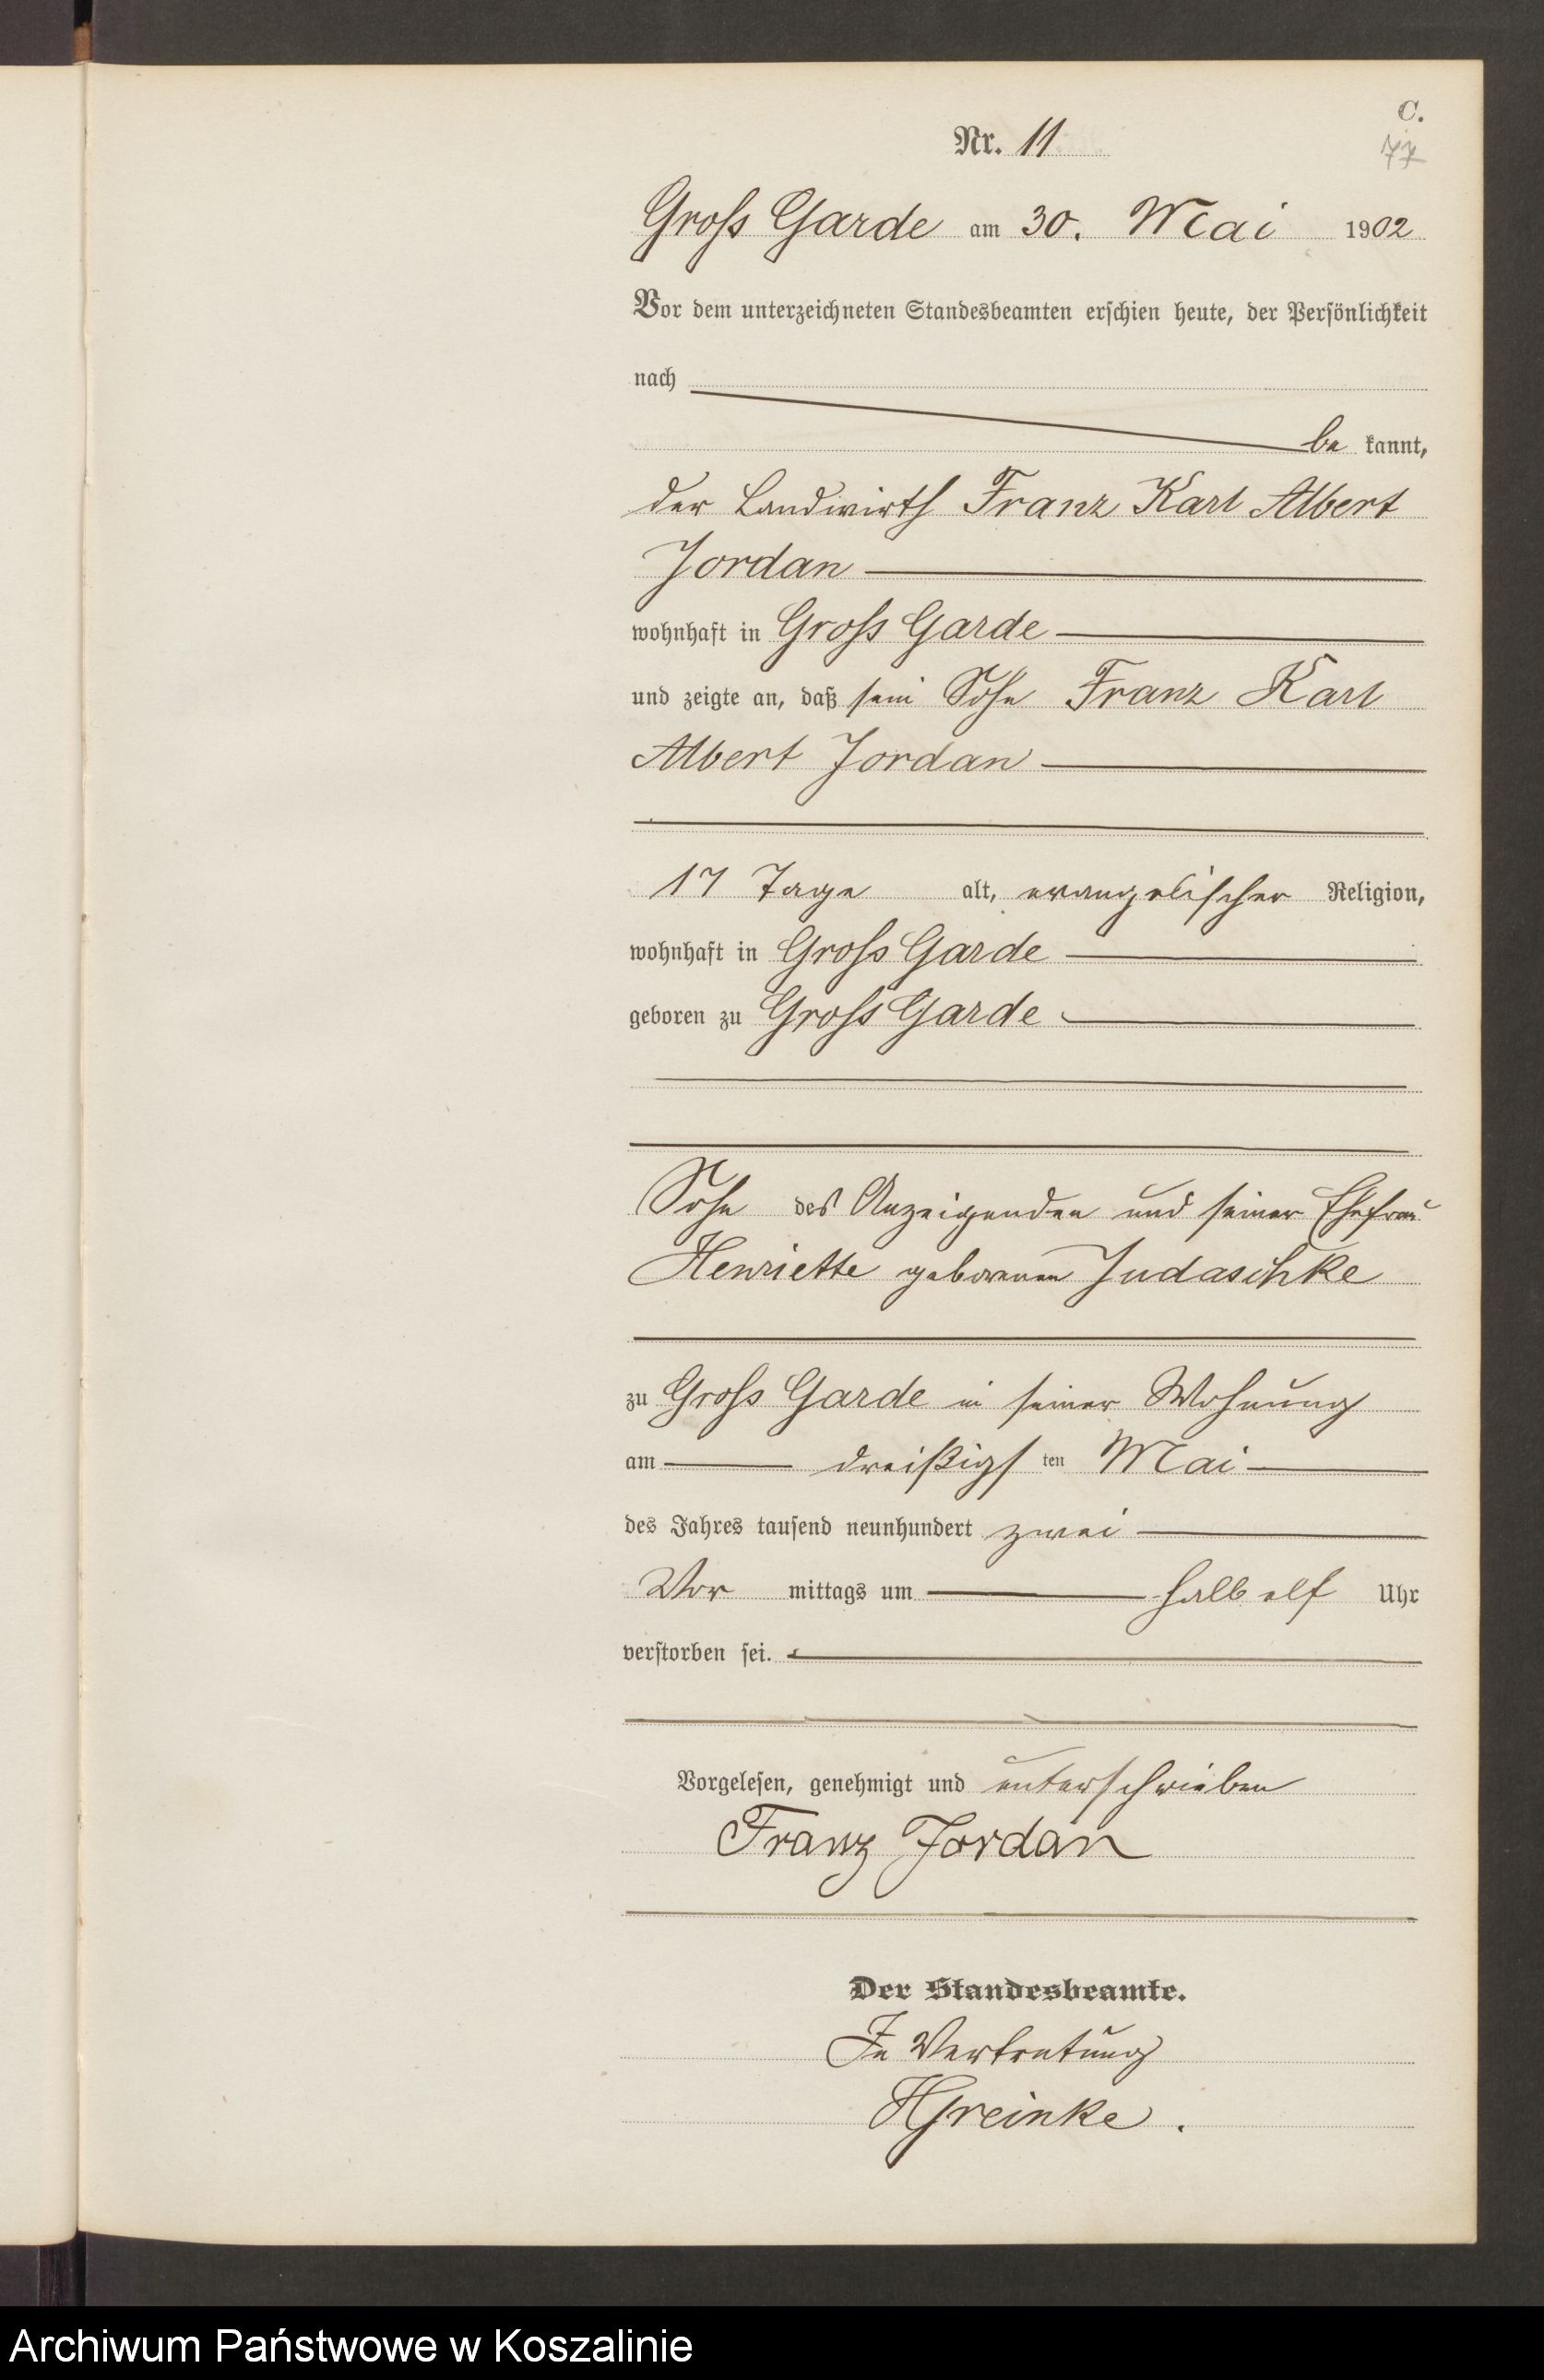 C.
Nr. 11
77
Groß Garde am 30. Mai 1902
Vor dem unterzeichneten Standesbeamten erschien heute, der Persönlichkeit
nach
be kannt,
der Landwirth Franz Karl Albert
Jordan
wohnhaft in Groß Garde
und zeigte an, daß sein Sohn Franz Karl
Albert Jordan
17 Tage alt, evangelischer Religion,
wohnhaft in Groß Garde
geboren zu Groß Garde
Sohn des Anzeigenden und seiner Ehefrau
Henriette geborenen Judaschke
zu Groß Garde in seiner Wohnung
am dreißigs ten Mai
des Jahres tausend neunhundert zwei
Vor mittags um halb elf Uhr
verstorben sei.
Vorgelesen, genehmigt und unterschrieben
Franz Jordan
Der Standesbeamte.
In Vertretung
HGreinke.
Archiwum Państwowe w Koszalinie